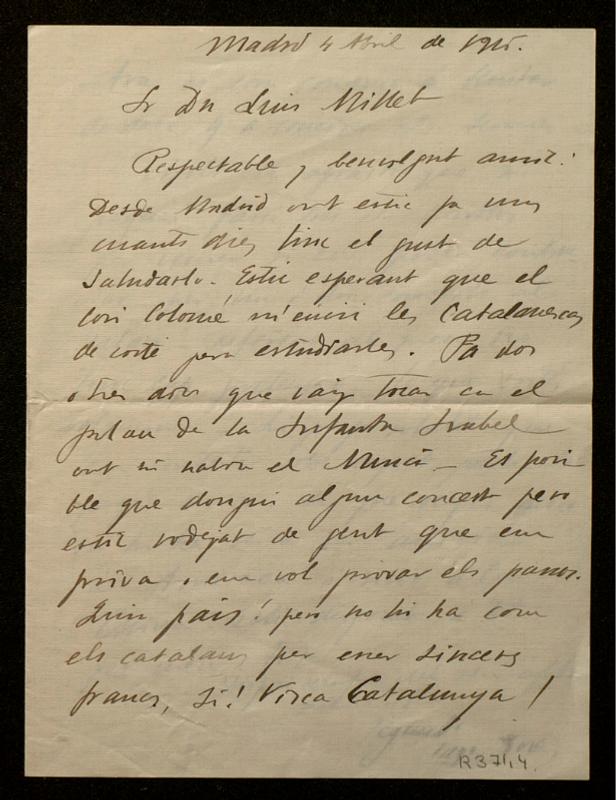 Madrid 4 Abril de 1915.
Sr Dn Luis Millet
Respectable y benvolgut amic:
Desde Madrid ont estic ja uns
cuants dies tinc el gust de
saludarlo. Estic esperant que el
bon Colomé m'envii les Catalanescas
de corté pera estudiarles. Fa dos
o tres dies que vaig tocar en el
palau de la Infanta Isabel
ont hi havia el Nunci – Es posi
ble que dongui algun concert pero
estic rodejat de gent que em
priva i em vol privar els passos.
Quin pais! pero no hi ha com
els catalans per esser sincers
francs, Si! Visca Catalunya!
R 37/1,4